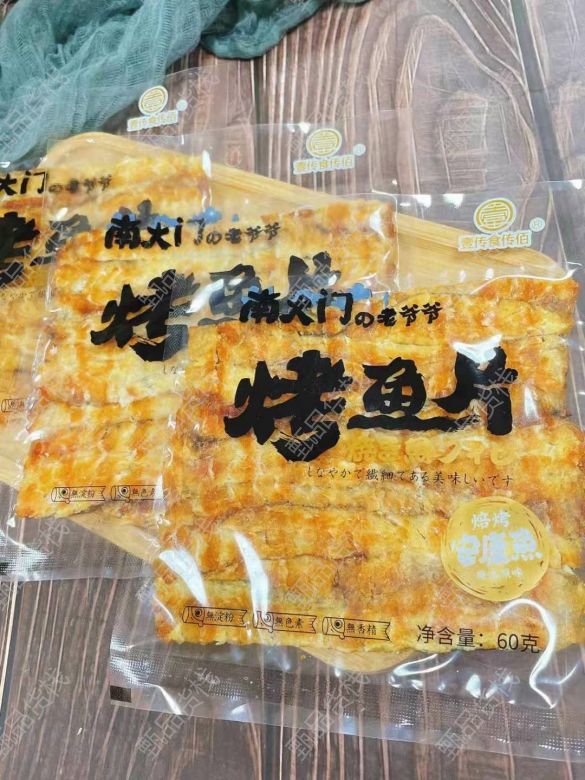 壹传食传佰
壹传食传佰®
大门の老爷爷
烤鱼
南大门の老爷爷
烤鱼片
無淀粉
無色素
壹传食传佰®
南大门の老爷爷
烤鱼片
しなやかで繊細である美味しいです
焙烤
安康魚
無淀粉
無色素
無香精
净含量：60克
甄品货栈